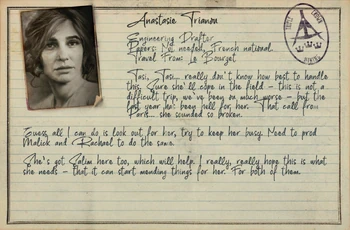 Anastasie Trianon
Engineering Drafter
Papers: No needed, French national.
Travel From: Le Bourget
Tasi, Tasi... really don't know how best to handle
this. Sure she'll cope in the field - this is not a
difficult trip, we've been on much worse - but the
last year has been hell for her. That call from
Paris... she sounded so broken.
Guess all I can do is look out for her, try to keep her busy. Need to prod
Malick and Rachael to do the same.
She's got Salim here too, which will help. I really, really hope this is what
she needs - that it can start mending things for her. For both of them.